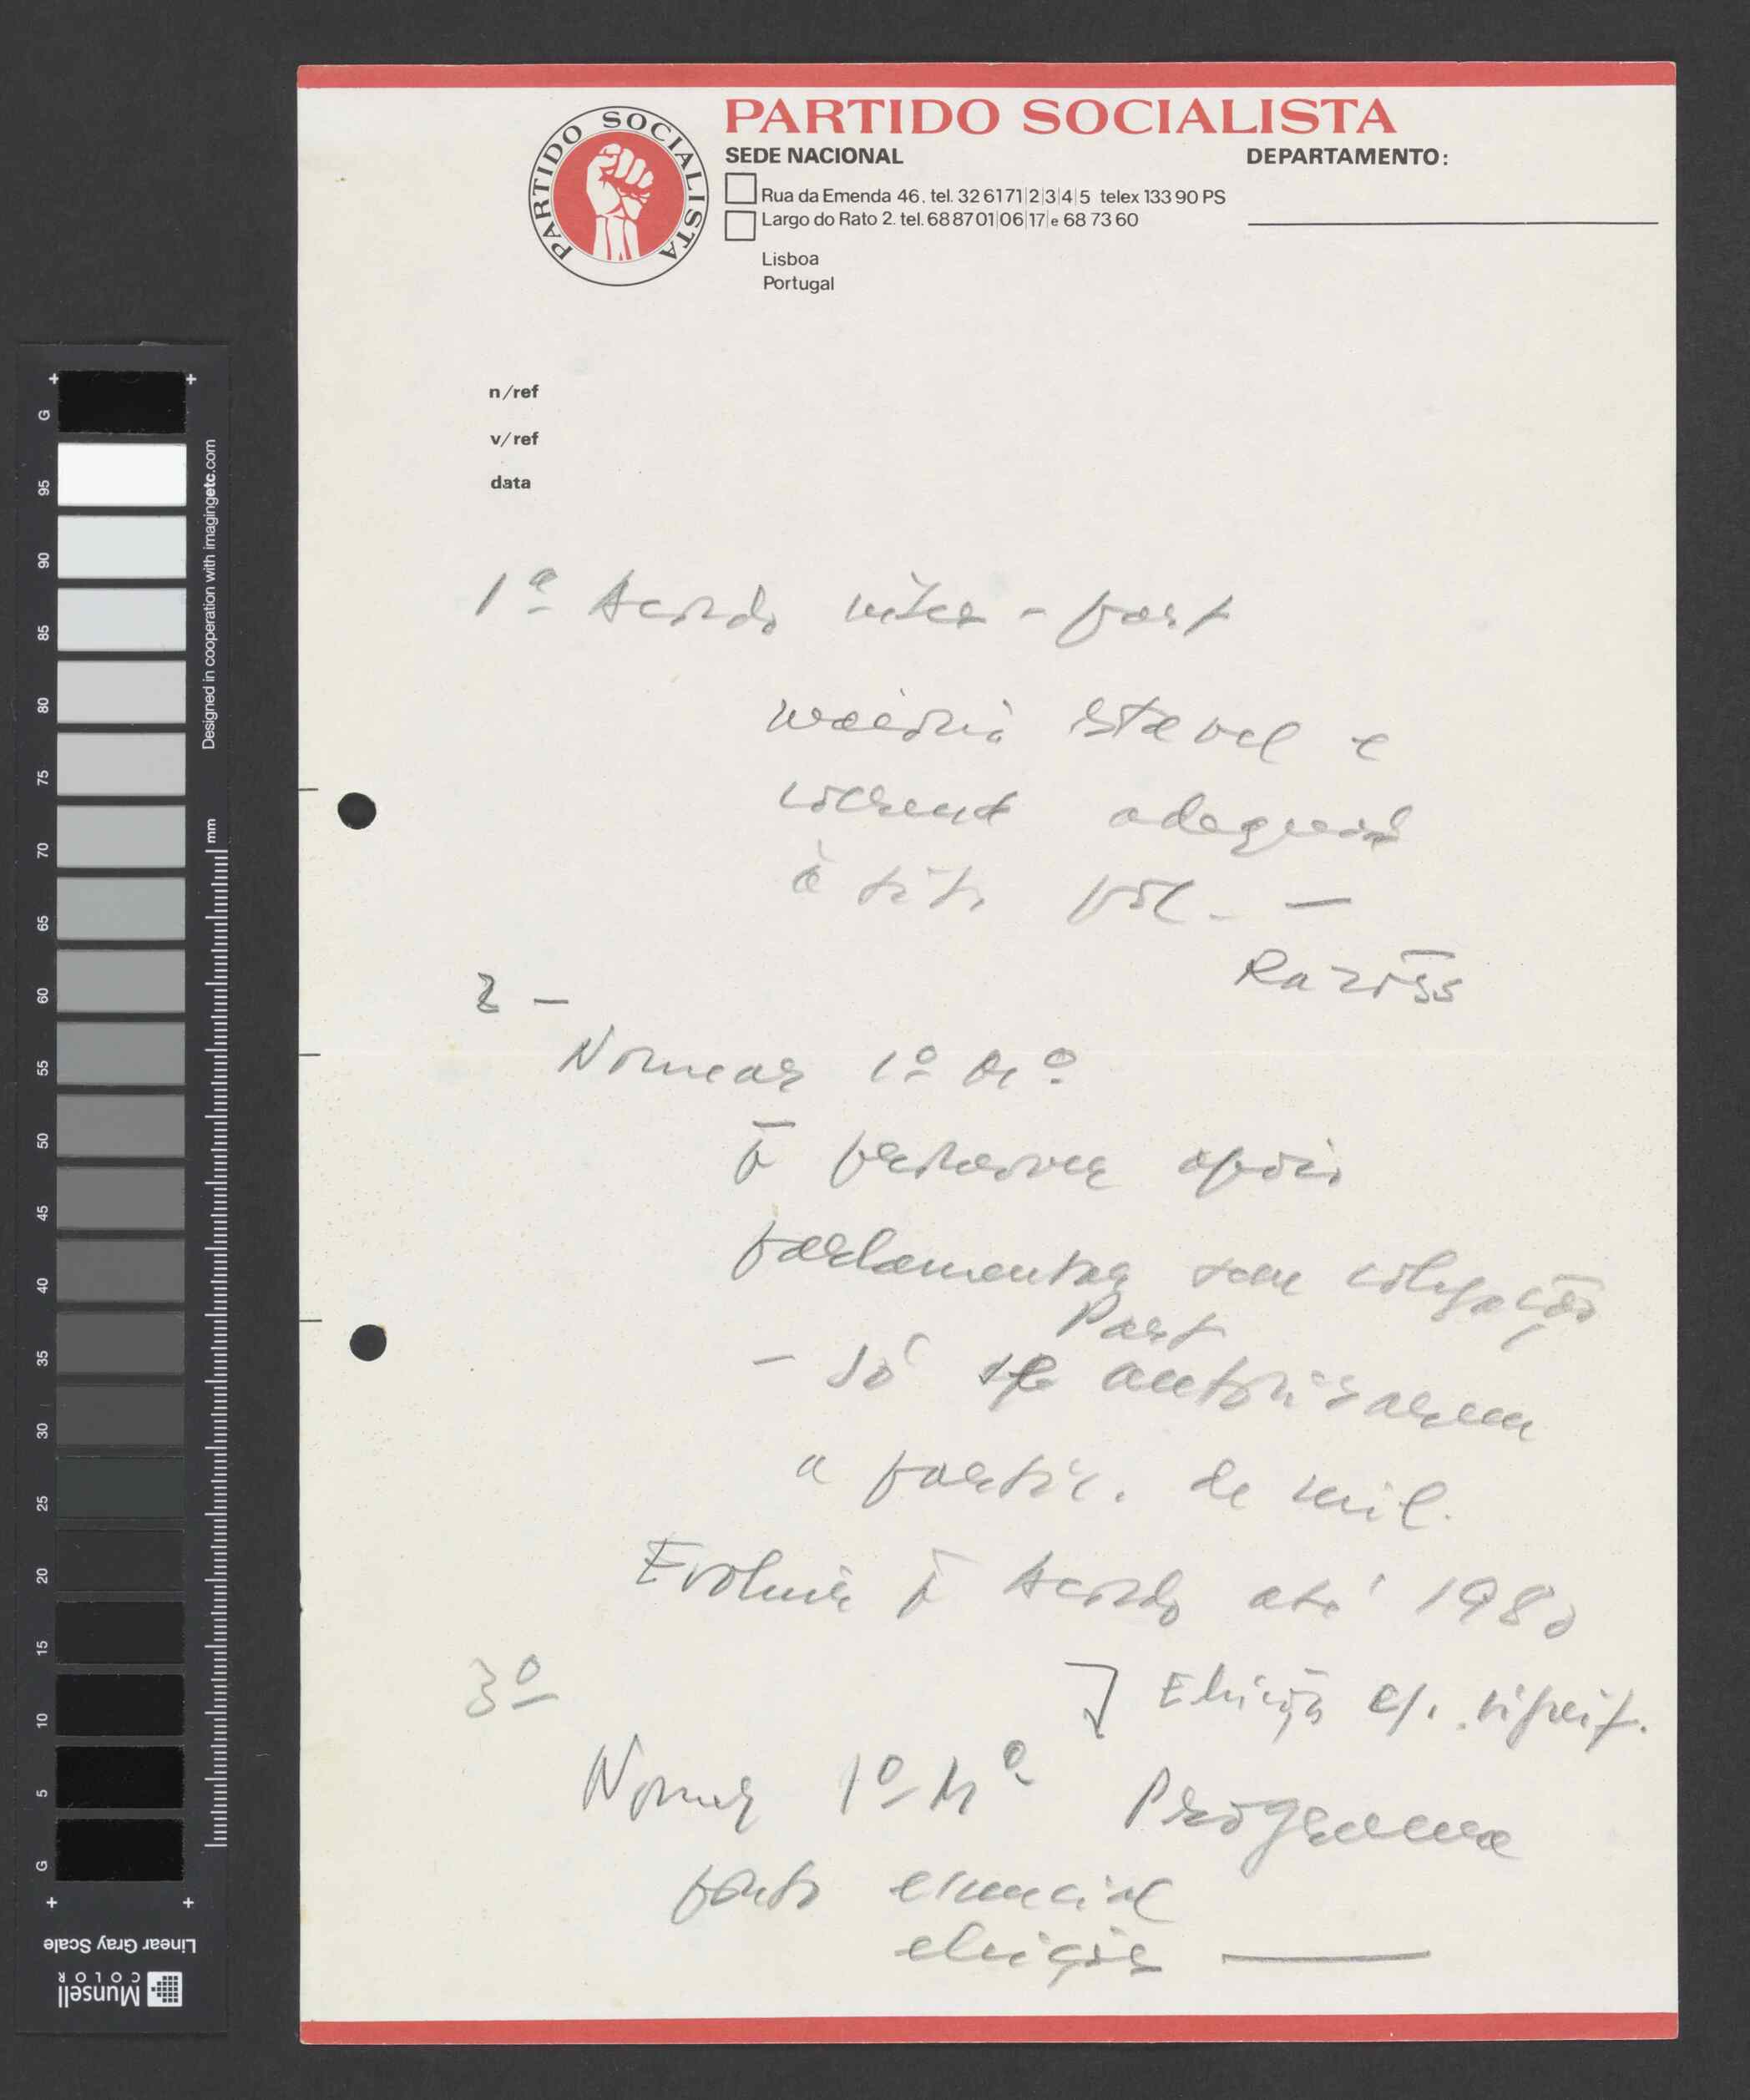 PARTIDO SOCIALISTA
PARTIDO SOCIALISTA
SEDE NACIONAL
DEPARTAMENTO:
Rua da Emenda 46. tel. 32 6171|2|3|4|5 telex 133 90 PS
Largo do Rato 2. tel. 68 87 01|06|17|e 68 73 60
Lisboa
Portugal
n/ref
v/ref
data
1ª Acordo inter-part
maioria estavel e
coerent adequad
à sit. pol. —
Razões
2 —
Nomear 1º M.º
parlamentar sem coligação
Part
— Só se autorizarem
a partic. de mil.
Evoluir Acordo até 1980
3º
Eleição
Nomear 1º Mº Programa
ponto essencial
eleições —
G
95
90
85
80
75
70
65
60
55
50
45
40
35
30
25
20
15
10
5
G
mm
Designed in cooperation with imagingetc.com
Linear Gray Scale
Munsell
COLOR